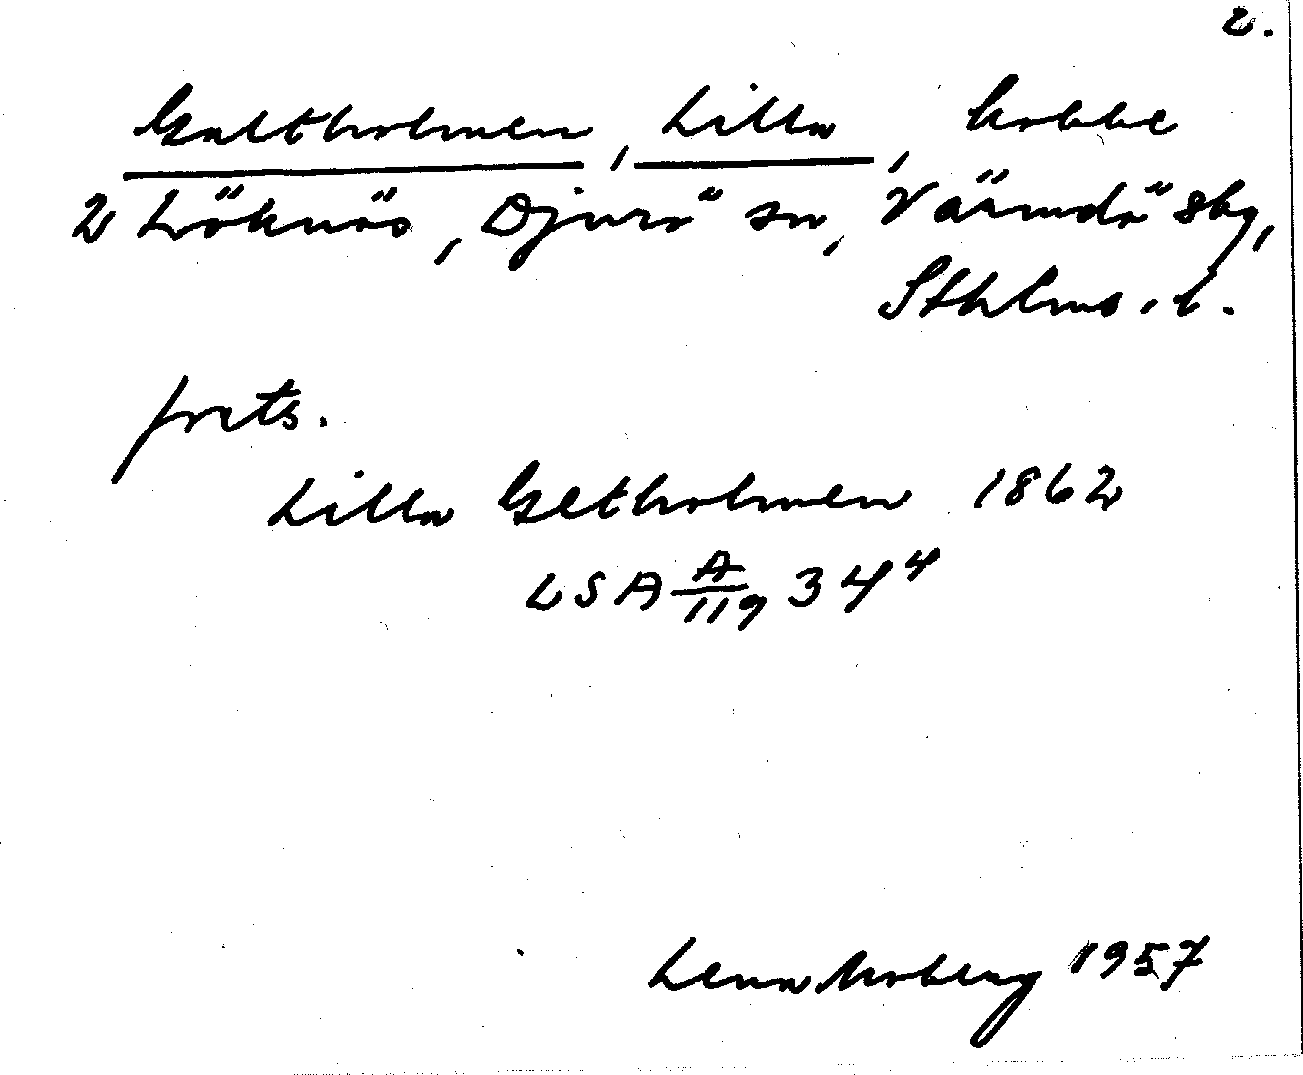 2.
Galtholmen, Lilla, kobbe
2 Löknäs, Djurö sn, Värmdö skg,
Sthlms. l.
forts.
Lilla Getholmen 1862
LSA A/119 34⁴
Lena Moberg 1957